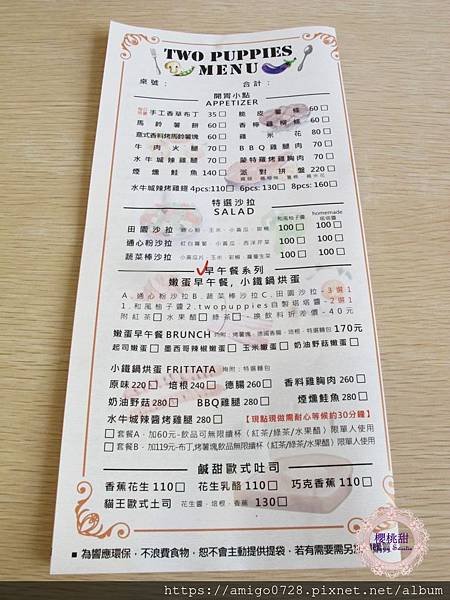 TWO PUPPIES
MENU
桌號： 合計：
開胃小點
APPETIZER
手工香草布丁 35□ 脆皮薯條 60□
馬鈴薯餅 60□ 香檸雞柳條 60□
意式香料烤馬鈴薯塊 60□ 雞米花 80□
牛肉火腿 70□ BBQ雞腿肉 70□
水牛城辣雞腿 70□ 蒙特羅烤雞胸肉 70□
煙燻鮭魚 140□ 派對拼盤 220□
水牛城辣烤雞翅 4pcs:110□ 6pcs: 130□ 8pcs: 160□
特選沙拉
SALAD
和風柚子醬 homemade 塔塔醬
田園沙拉 100□ 100□
通心粉沙拉 100□ 100□
蔬菜棒沙拉 100□ 100□
早午餐系列
嫩蛋早午餐, 小鐵鍋烘蛋
A.通心粉沙拉B.蔬菜棒沙拉C.田園沙拉-3選1
1.和風柚子醬2.twopuppies自製塔塔醬-2選1
附紅茶□ 水果醋□ 綠茶□ -換飲料折差價-40元
嫩蛋早午餐BRUNCH 均附:烤薯塊,德國香腸,培根,特選麵包 170元
起司嫩蛋□ 墨西哥辣椒嫩蛋□ 玉米嫩蛋□ 奶油野菇嫩蛋□
小鐵鍋烘蛋 FRITTATA 均附:特選麵包
原味220□ 培根240□ 德腸260□ 香料雞胸肉260□
奶油野菇280□ BBQ雞腿 280□ 煙燻鮭魚280□
水牛城辣醬烤雞腿 280□ 【現點現做需耐心等候約30分鐘】
□套餐A．加60元-飲品可無限續杯（紅茶/綠茶/水果醋）限單人使用
□套餐B．加119元-布丁,烤薯塊,飲品無限續杯（紅茶/綠茶/水果醋）限單人使用
鹹甜歐式吐司
香蕉花生 110□ 花生乳酪 110□ 巧克香蕉 110□
貓王歐式土司 花生醬、培根、香蕉 130□
■為響應環保，不浪費食物，恕不會主動提供提袋，若有需要需另加購買
櫻桃甜
https://amigo0728.pixnet.net/album